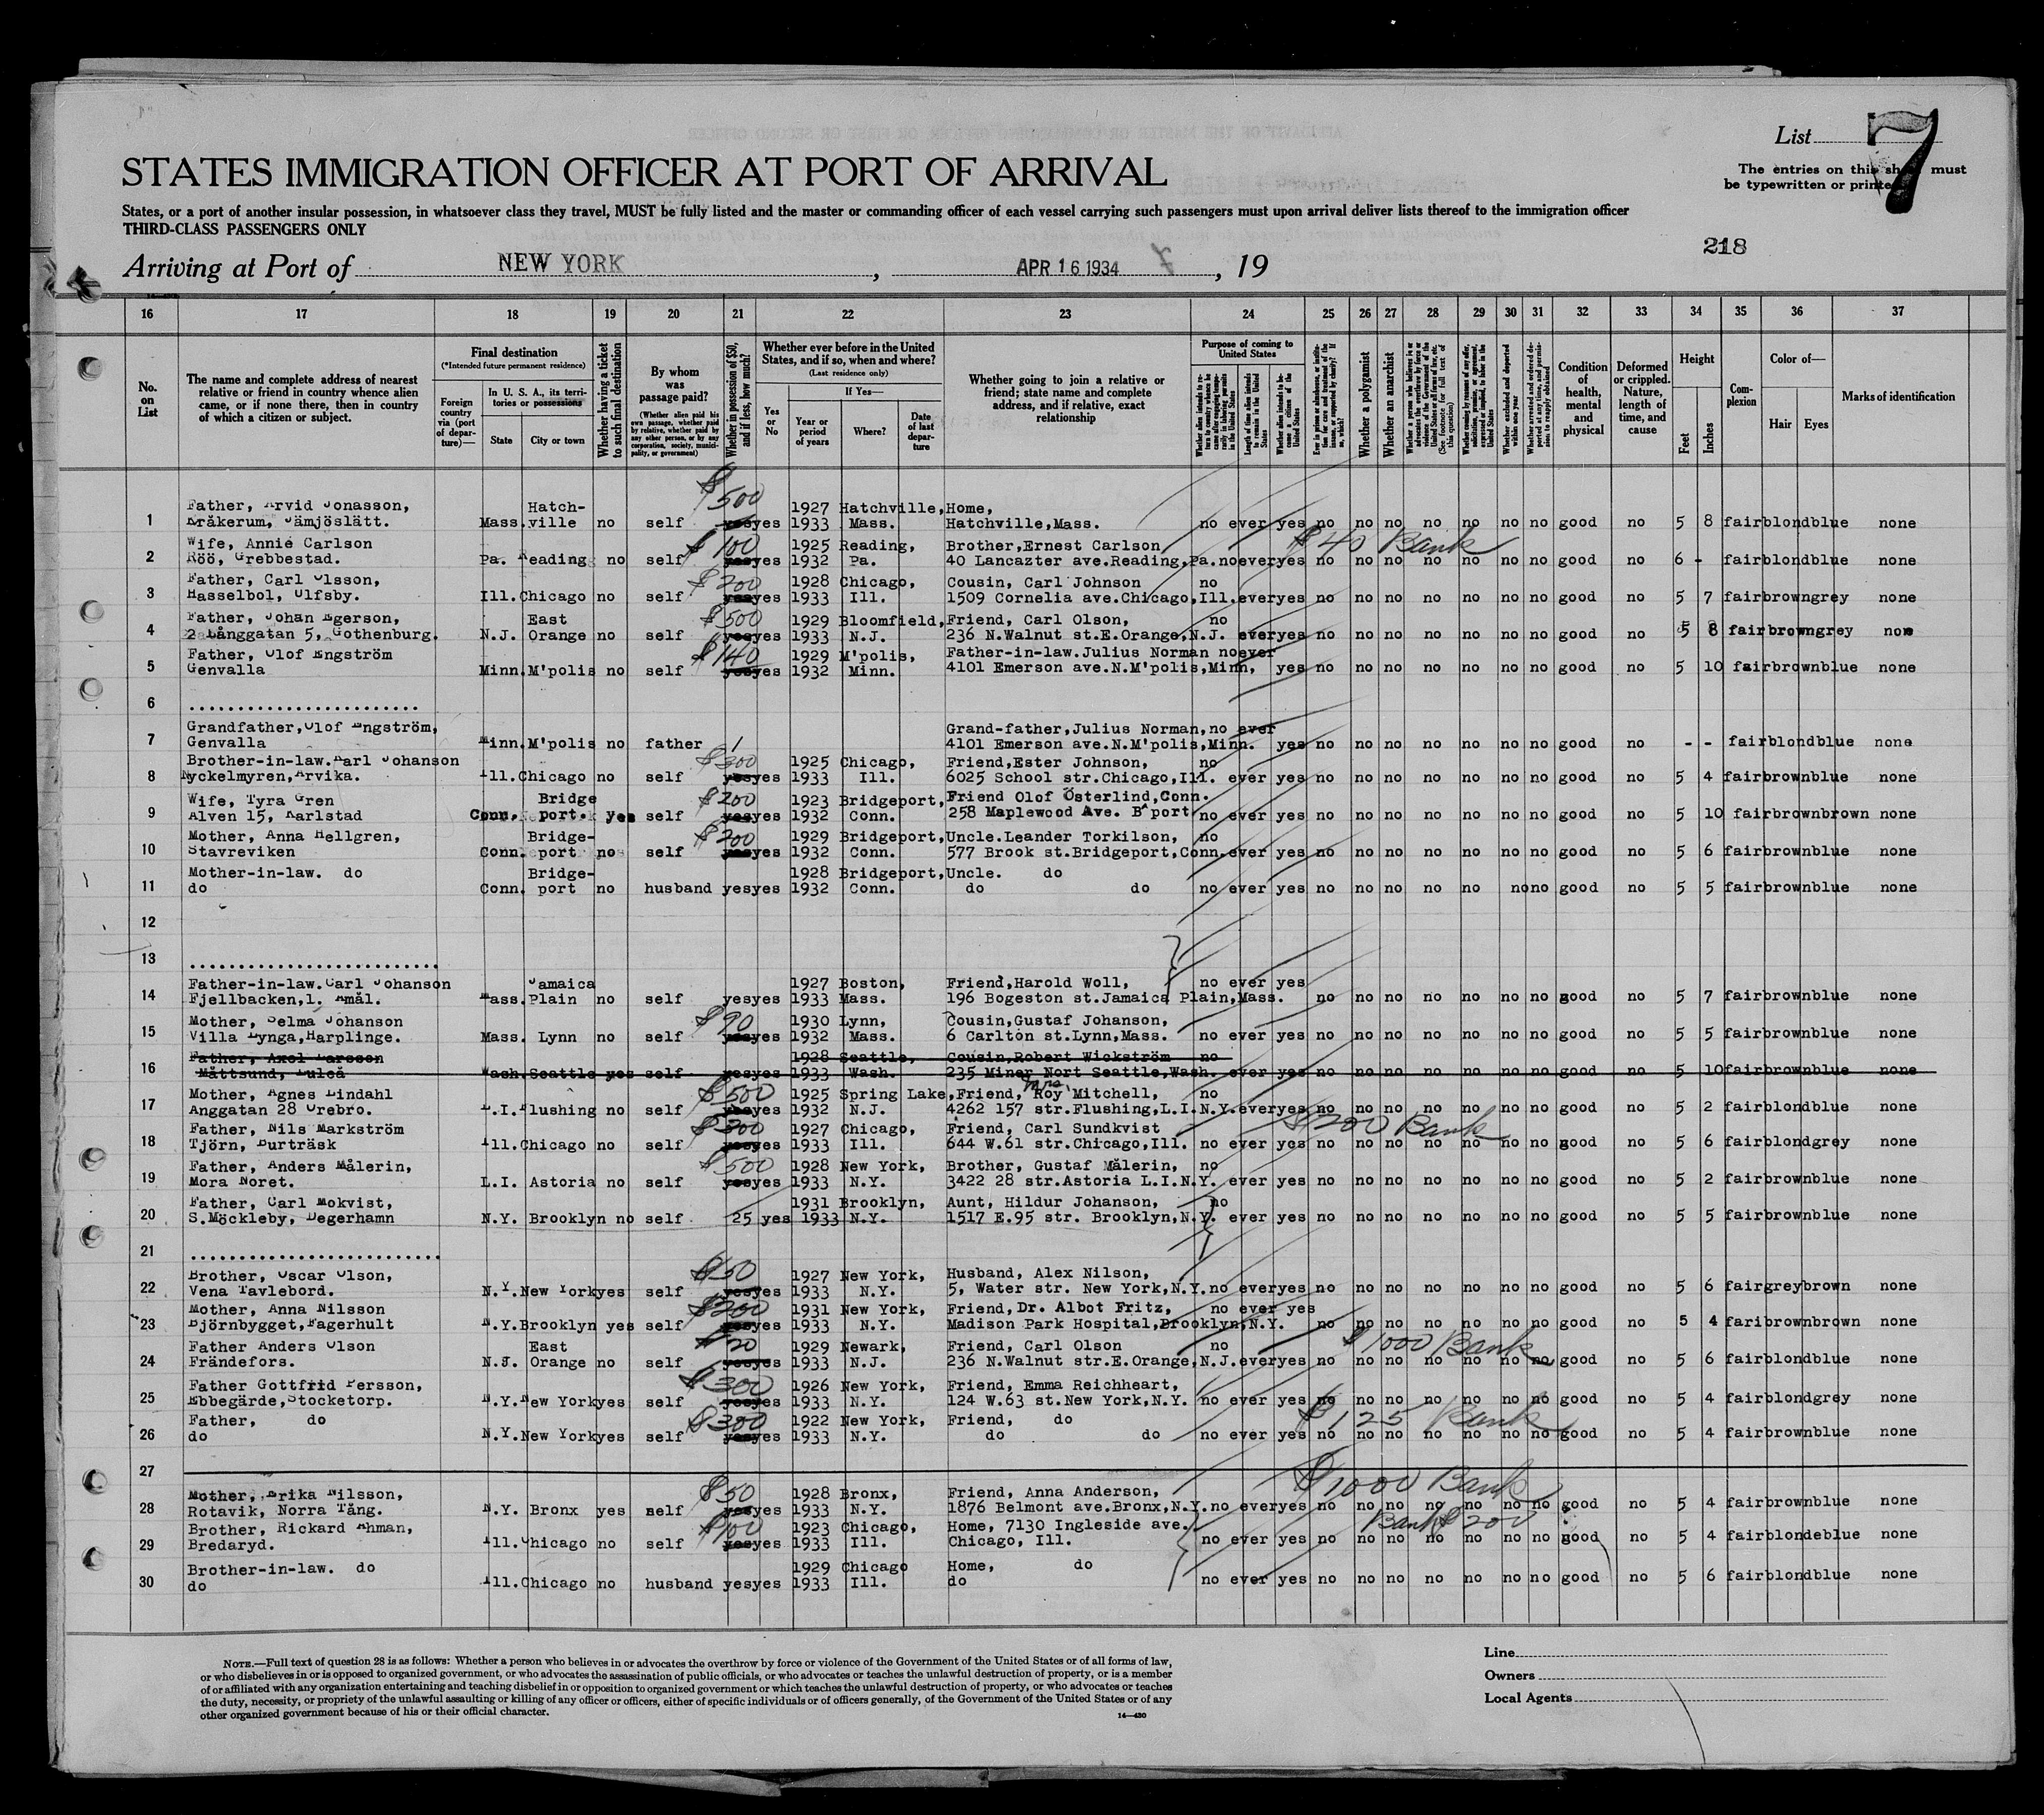 List 7
The entries on this sh must
be typewritten or printe
STATES IMMIGRATION OFFICER AT PORT OF ARRIVAL
States, or a port of another insular possession, in whatsoever class they travel, MUST be fully listed and the master or commanding officer of each vessel carrying such passengers must upon arrival deliver lists thereof to the immigration officer
THIRD-CLASS PASSENGERS ONLY
218
Arriving at Port of NEW YORK, APR 16 1934, 19
16 17 18 19 20 21 22 23 24 25 26 27 28 29 30 31 32 33 34 35 36 37
No. on List
The name and complete address of nearest relative or friend in country whence alien came, or if none there, then in country of which a citizen or subject.
Final destination
(*Intended future permanent residence)
Foreign country via (port of departure)—
In U. S. A., its territories or possessions
State
City or town
Whether having a ticket to such final destination
By whom was passage paid?
(Whether alien paid his own passage, whether paid by relative, whether paid by any other person, or by any corporation, society, municipality, or government)
Whether in possession of $50, and if less, how much?
Whether ever before in the United States, and if so, when and where?
(Last residence only)
Yes or No
If Yes—
Year or period of years
Where?
Date of last departure
Whether going to join a relative or friend; state name and complete address, and if relative, exact relationship
Purpose of coming to United States
Length of time alien intends to remain in the United States
Whether alien intends to become a citizen of the United States
Whether a polygamist
Whether an anarchist
Condition of health, mental and physical
Deformed or crippled. Nature, length of time, and cause
Height
Feet
Inches
Complexion
Color of—
Hair
Eyes
Marks of identification
$500
Father, Arvid Jonasson, Hatch- 1927 Hatchville, Home,
1 Bråkerum, Jämjöslätt. Mass. ville no self yes yes 1933 Mass. Hatchville,Mass. no ever yes no no no no no no no good no 5 8 fair blond blue none
Wife, Annie Carlson $100 1925 Reading, Brother,Ernest Carlson $40 Bank
2 Röö, Grebbestad. Pa. Reading no self yes yes 1932 Pa. 40 Lancazter ave.Reading,Pa. no ever yes no no no no no no no good no 6 - fair blond blue none
Father, Carl Olsson, $200 1928 Chicago, Cousin, Carl Johnson no
3 Hasselbol, Ulfsby. Ill. Chicago no self yes yes 1933 Ill. 1509 Cornelia ave.Chicago,Ill. ever yes no no no no no no no good no 5 7 fair brown grey none
Father, Johan Egerson, East $500 1929 Bloomfield, Friend, Carl Olson, no
4 2 Långgatan 5, Gothenburg. N.J. Orange no self yes yes 1933 N.J. 236 N.Walnut st.E.Orange,N.J. ever yes no no no no no no no good no 5 8 fair brown grey none
Father, Olof Engström $140 1929 M'polis, Father-in-law.Julius Norman no ever
5 Genvalla Minn. M'polis no self yes yes 1932 Minn. 4101 Emerson ave.N.M'polis,Minn, yes no no no no no no no good no 5 10 fair brown blue none
6 ........................
Grandfather,Olof Engström, Grand-father,Julius Norman, no ever
7 Genvalla Minn. M'polis no father 1 4101 Emerson ave.N.M'polis,Minn. yes no no no no no no no good no - - fair blond blue none
Brother-in-law.Karl Johanson $300 1925 Chicago, Friend,Ester Johnson, no
8 Nyckelmyren,Arvika. Ill. Chicago no self yes yes 1933 Ill. 6025 School str.Chicago,Ill. ever yes no no no no no no no good no 5 4 fair brown blue none
Wife, Tyra Gren Bridge $200 1923 Bridgeport, Friend Olof Österlind,Conn.
9 Alven 15, Karlstad Conn. port. yes self yes yes 1932 Conn. 258 Maplewood Ave. B^port no ever yes no no no no no no no good no 5 10 fair brown brown none
Mother, Anna Hellgren, Bridge- $200 1929 Bridgeport, Uncle.Leander Torkilson, no
10 Stavreviken Conn. port no self yes yes 1932 Conn. 577 Brook st.Bridgeport,Conn. ever yes no no no no no no no good no 5 6 fair brown blue none
Mother-in-law. do Bridge- 1928 Bridgeport, Uncle. do
11 do Conn. port no husband yes yes 1932 Conn. do do no ever yes no no no no no no no good no 5 5 fair brown blue none
12
13 ..........................
Father-in-law.Carl Johanson Jamaica 1927 Boston, Friend,Harold Woll, no ever yes
14 Fjellbacken,1. Åmål. Mass. Plain no self yes yes 1933 Mass. 196 Bogeston st.Jamaica Plain,Mass. no no no no no no no good no 5 7 fair brown blue none
Mother, Selma Johanson $90 1930 Lynn, Cousin,Gustaf Johanson,
15 Villa Lynga,Harplinge. Mass. Lynn no self yes yes 1932 Mass. 6 Carlton st.Lynn,Mass. no ever yes no no no no no no no good no 5 5 fair brown blue none
Father, Axel Larsson 1928 Seattle, Cousin,Robert Wickström no
16 Måttsund, Luleå Wash. Seattle yes self yes yes 1933 Wash. 235 Miner Nort Seattle,Wash. ever yes no no no no no no no good no 5 10 fair brown blue none
Mother, Agnes Lindahl $500 1925 Spring Lake, Friend, Mrs. Roy Mitchell, no
17 Anggatan 28 Örebro. L.I. Flushing no self yes yes 1932 N.J. 4262 157 str.Flushing,L.I.N.Y. ever yes no no no no no no no good no 5 2 fair blond blue none
Father, Nils Markström $300 1927 Chicago, Friend, Carl Sundkvist $200 Bank
18 Tjörn, Burträsk Ill. Chicago no self yes yes 1933 Ill. 644 W.61 str.Chicago,Ill. no ever yes no no no no no no no good no 5 6 fair blond grey none
Father, Anders Målerin, $500 1928 New York, Brother, Gustaf Målerin, no
19 Mora Noret. L.I. Astoria no self yes yes 1933 N.Y. 3422 28 str.Astoria L.I.N.Y. ever yes no no no no no no no good no 5 2 fair brown blue none
Father, Carl Mokvist, 1931 Brooklyn, Aunt, Hildur Johanson, no
20 S.Möckleby, Degerhamn N.Y. Brooklyn no self 25 yes 1933 N.Y. 1517 E.95 str. Brooklyn,N.Y. ever yes no no no no no no no good no 5 5 fair brown blue none
21 ..........................
Brother, Oscar Olson, $50 1927 New York, Husband, Alex Nilson,
22 Vena Tavlebord. N.Y. New York yes self yes yes 1933 N.Y. 5, Water str. New York,N.Y. no ever yes no no no no no no no good no 5 6 fair grey brown none
Mother, Anna Nilsson $200 1931 New York, Friend,Dr. Albot Fritz, no ever yes
23 Björnbygget,Fagerhult N.Y. Brooklyn yes self yes yes 1933 N.Y. Madison Park Hospital,Brooklyn,N.Y. no no no no no no no good no 5 4 fari brown brown none
Father Anders Olson East $20 1929 Newark, Friend, Carl Olson no $1000 Bank
24 Frändefors. N.J. Orange no self yes yes 1933 N.J. 236 N.Walnut str.E.Orange,N.J. ever yes no no no no no no no good no 5 6 fair blond blue none
Father Gottfrid Persson, $300 1926 New York, Friend, Emma Reichheart,
25 Ebbegärde,Stocketorp. N.Y. New York yes self yes yes 1933 N.Y. 124 W.63 st.New York,N.Y. no ever yes no no no no no no no good no 5 4 fair blond grey none
Father, do $300 1922 New York, Friend, do $125 Bank
26 do N.Y. New York yes self yes yes 1933 N.Y. do do no ever yes no no no no no no no good no 5 4 fair brown blue none
27
$1000 Bank
Mother, Erika Nilsson, $50 1928 Bronx, Friend, Anna Anderson,
28 Rotavik, Norra Tång. N.Y. Bronx yes self yes yes 1933 N.Y. 1876 Belmont ave.Bronx,N.Y. no ever yes no no no no no no no good no 5 4 fair brown blue none
Brother, Rickard Ahman, $100 1923 Chicago, Home, 7130 Ingleside ave. Bank $200
29 Bredaryd. Ill. Chicago no self yes yes 1933 Ill. Chicago, Ill. no ever yes no no no no no no no good no 5 4 fair blonde blue none
Brother-in-law. do 1929 Chicago Home, do
30 do Ill. Chicago no husband yes yes 1933 Ill. do no ever yes no no no no no no no good no 5 6 fair blond blue none
NOTE.—Full text of question 28 is as follows: Whether a person who believes in or advocates the overthrow by force or violence of the Government of the United States or of all forms of law,
or who disbelieves in or is opposed to organized government, or who advocates the assassination of public officials, or who advocates or teaches the unlawful destruction of property, or is a member
of or affiliated with any organization entertaining and teaching disbelief in or opposition to organized government or which teaches the unlawful destruction of property, or who advocates or teaches
the duty, necessity, or propriety of the unlawful assaulting or killing of any officer or officers, either of specific individuals or of officers generally, of the Government of the United States or of any
other organized government because of his or their official character.
14—430
Line
Owners
Local Agents